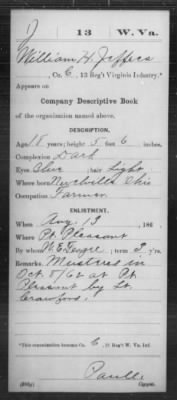 J 13 W. Va.
William H. Jeffers
Co. C, 13 Reg't Virginia Infantry.*
Appears on
Company Descriptive Book
of the organization named above.
DESCRIPTION.
Age 18 years; height 5 feet 6 inches.
Complexion Dark
Eyes Blue; hair Light
Where born Ohio
Occupation Farmer
ENLISTMENT.
When Aug. 13, 186 .
Where Pt. Pleasant
By whom W. E. ; term 3 y'rs.
Remarks: Mustered in
Oct. 8/62 at Pt.
Pleasant by Lt.
Crawford.
*This organization became Co. C, 13 Reg't W. Va. Inf.
Copyist.